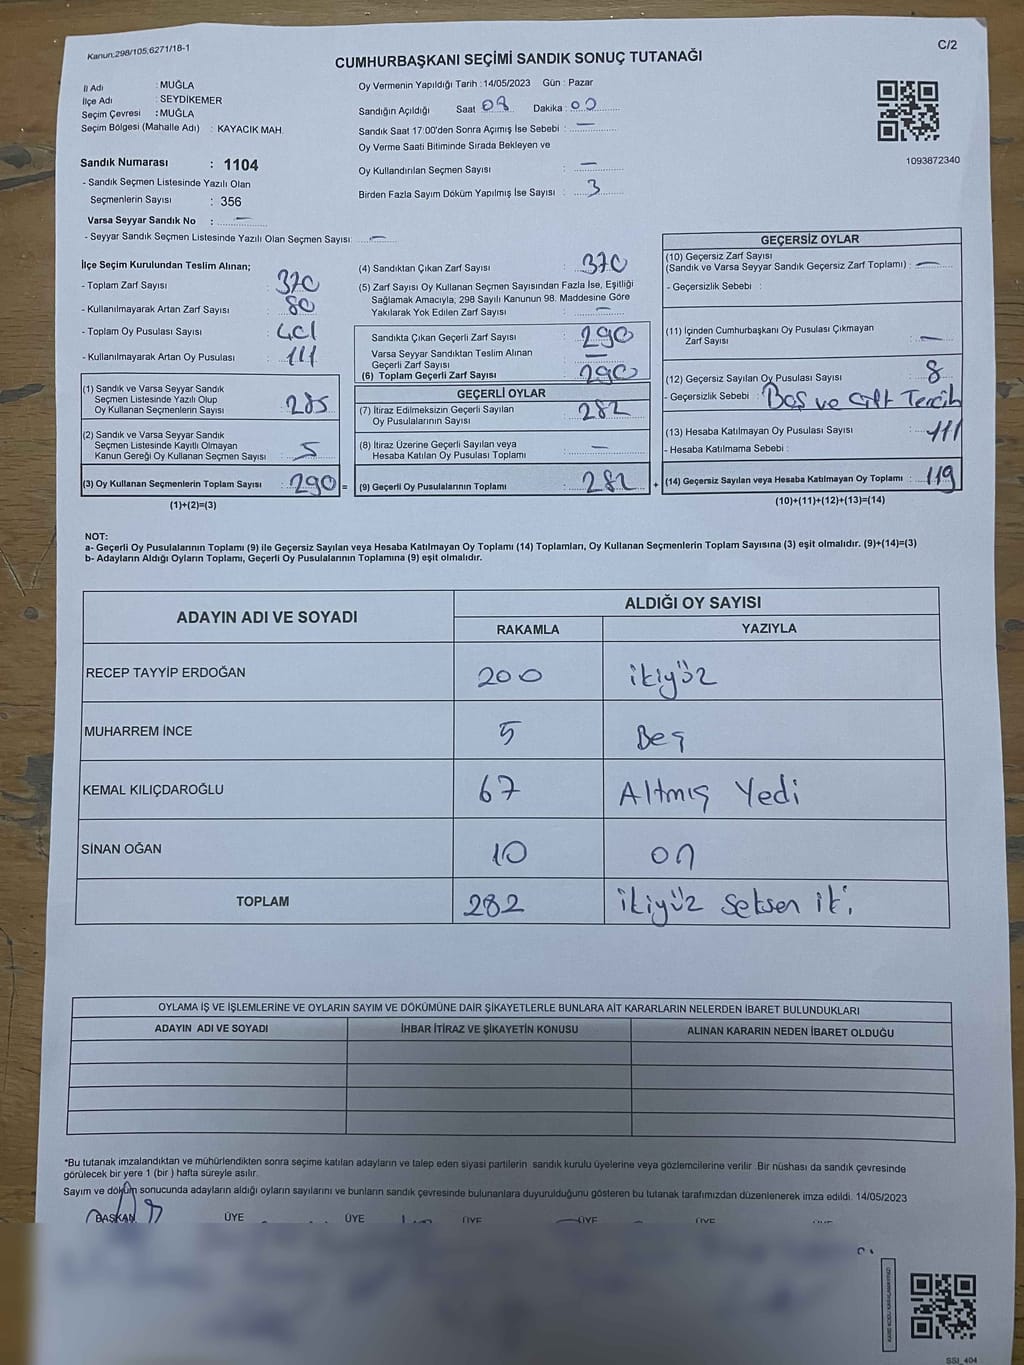 Kanun:298/105,6271/18-1
C/2
CUMHURBAŞKANI SEÇİMİ SANDIK SONUÇ TUTANAĞI
İl Adı : MUĞLA
İlçe Adı : SEYDİKEMER
Seçim Çevresi : MUĞLA
Seçim Bölgesi (Mahalle Adı) : KAYACIK MAH.
Sandık Numarası : 1104
- Sandık Seçmen Listesinde Yazılı Olan
Seçmenlerin Sayısı : 356
Varsa Seyyar Sandık No : —
- Seyyar Sandık Seçmen Listesinde Yazılı Olan Seçmen Sayısı: —
Oy Vermenin Yapıldığı Tarih : 14/05/2023 Gün : Pazar
Sandığın Açıldığı Saat 08 Dakika : 00
Sandık Saat 17:00'den Sonra Açımış İse Sebebi : —
Oy Verme Saati Bitiminde Sırada Bekleyen ve
Oy Kullandırılan Seçmen Sayısı : —
Birden Fazla Sayım Döküm Yapılmış İse Sayısı : 3
1093872340
İlçe Seçim Kurulundan Teslim Alınan;
- Toplam Zarf Sayısı : 370
- Kullanılmayarak Artan Zarf Sayısı : 80
- Toplam Oy Pusulası Sayısı : 401
- Kullanılmayarak Artan Oy Pusulası : 111
(1) Sandık ve Varsa Seyyar Sandık
Seçmen Listesinde Yazılı Olup
Oy Kullanan Seçmenlerin Sayısı : 285
(2) Sandık ve Varsa Seyyar Sandık
Seçmen Listesinde Kayıtlı Olmayan
Kanun Gereği Oy Kullanan Seçmen Sayısı : 5
(3) Oy Kullanan Seçmenlerin Toplam Sayısı : 290 =
(1)+(2)=(3)
(4) Sandıktan Çıkan Zarf Sayısı : 370
(5) Zarf Sayısı Oy Kullanan Seçmen Sayısından Fazla İse, Eşitliği
Sağlamak Amacıyla, 298 Sayılı Kanunun 98. Maddesine Göre
Yakılarak Yok Edilen Zarf Sayısı : —
Sandıkta Çıkan Geçerli Zarf Sayısı : 290
Varsa Seyyar Sandıktan Teslim Alınan
Geçerli Zarf Sayısı : —
(6) Toplam Geçerli Zarf Sayısı : 290
GEÇERLİ OYLAR
(7) İtiraz Edilmeksizin Geçerli Sayılan
Oy Pusulalarının Sayısı : 282
(8) İtiraz Üzerine Geçerli Sayılan veya
Hesaba Katılan Oy Pusulası Toplamı : —
(9) Geçerli Oy Pusulalarının Toplamı : 282 +
GEÇERSİZ OYLAR
(10) Geçersiz Zarf Sayısı
(Sandık ve Varsa Seyyar Sandık Geçersiz Zarf Toplamı) : —
- Geçersizlik Sebebi :
(11) İçinden Cumhurbaşkanı Oy Pusulası Çıkmayan
Zarf Sayısı : —
(12) Geçersiz Sayılan Oy Pusulası Sayısı : 8
- Geçersizlik Sebebi : Boş ve Çift Tercih
(13) Hesaba Katılmayan Oy Pusulası Sayısı : 111
- Hesaba Katılmama Sebebi :
(14) Geçersiz Sayılan veya Hesaba Katılmayan Oy Toplamı : 119
(10)+(11)+(12)+(13)=(14)
NOT:
a- Geçerli Oy Pusulalarının Toplamı (9) ile Geçersiz Sayılan veya Hesaba Katılmayan Oy Toplamı (14) Toplamları, Oy Kullanan Seçmenlerin Toplam Sayısına (3) eşit olmalıdır. (9)+(14)=(3)
b- Adayların Aldığı Oyların Toplamı, Geçerli Oy Pusulalarının Toplamına (9) eşit olmalıdır.
ADAYIN ADI VE SOYADI ALDIĞI OY SAYISI
RAKAMLA YAZIYLA
RECEP TAYYİP ERDOĞAN 200 ikiyüz
MUHARREM İNCE 5 Beş
KEMAL KILIÇDAROĞLU 67 Altmış Yedi
SİNAN OĞAN 10 on
TOPLAM 282 ikiyüz seksen iki
OYLAMA İŞ VE İŞLEMLERİNE VE OYLARIN SAYIM VE DÖKÜMÜNE DAİR ŞİKAYETLERLE BUNLARA AİT KARARLARIN NELERDEN İBARET BULUNDUKLARI
ADAYIN ADI VE SOYADI İHBAR İTİRAZ VE ŞİKAYETİN KONUSU ALINAN KARARIN NEDEN İBARET OLDUĞU
*Bu tutanak imzalandıktan ve mühürlendikten sonra seçime katılan adayların ve talep eden siyasi partilerin sandık kurulu üyelerine veya gözlemcilerine verilir. Bir nüshası da sandık çevresinde
görülecek bir yere 1 (bir ) hafta süreyle asılır.
Sayım ve döküm sonucunda adayların aldığı oyların sayılarını ve bunların sandık çevresinde bulunanlara duyurulduğunu gösteren bu tutanak tarafımızdan düzenlenerek imza edildi. 14/05/2023
BAŞKAN ÜYE ÜYE ÜYE ÜYE ÜYE
SSI_404